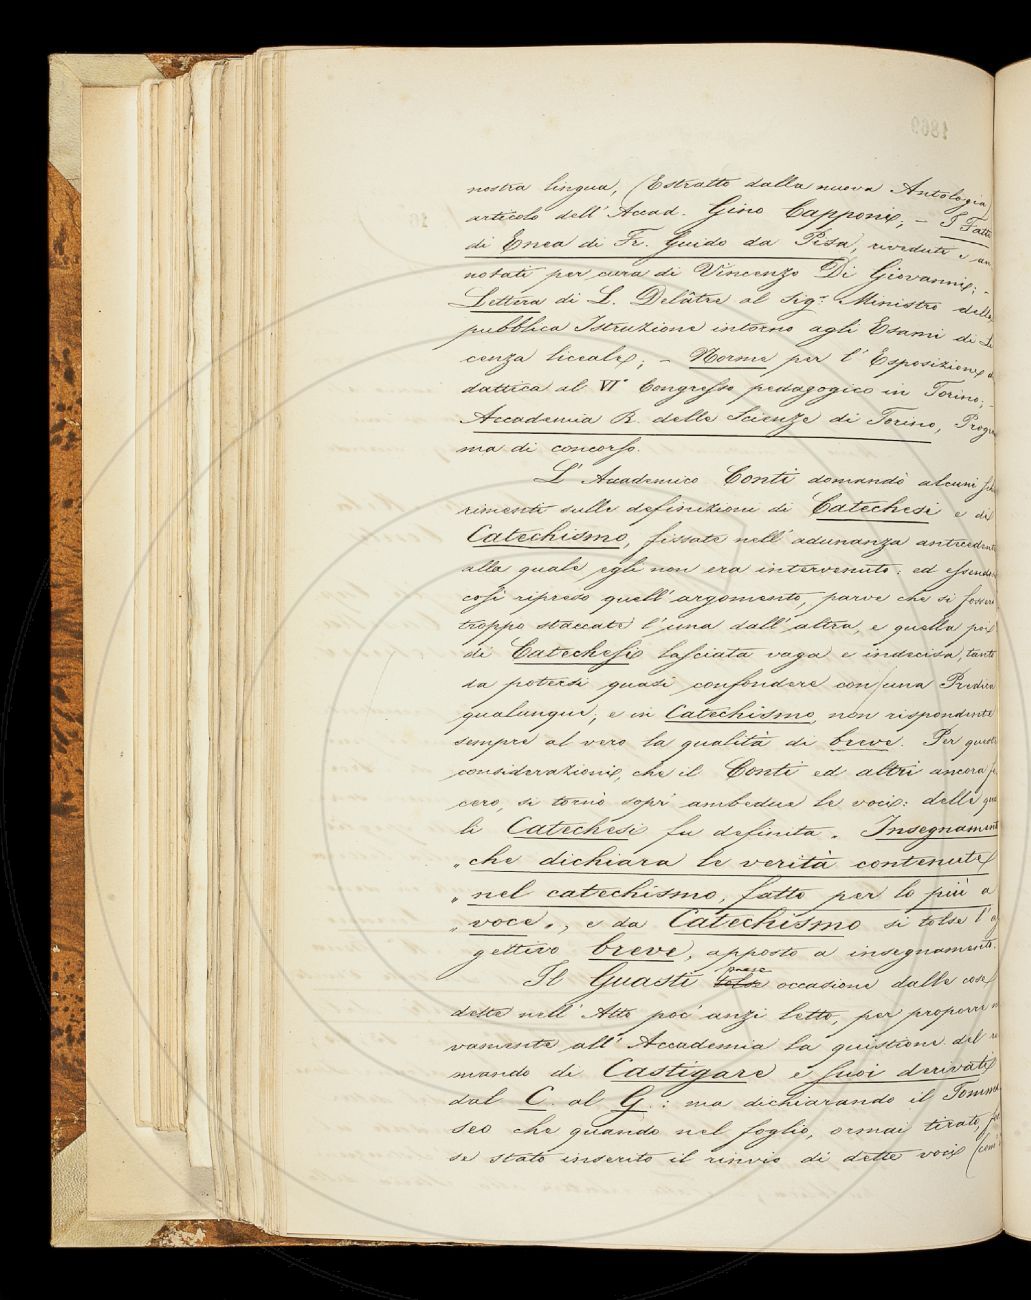 nostra lingua, (Estratto dalla nuova Antologia)
articolo dell'Accad. Gino Capponi; – I Fatti
di Enea di Fr. Guido da Pisa, riveduti e an
notati per cura di Vincenzo Di Giovanni; –
Lettera di L. Delâtre al Sig.r Ministro della
pubblica Istruzione intorno agli Esami di Li
cenza liceale; – Norme per l'Esposizione di
dattica al VI° Congresso pedagogico in Torino; –
Accademia R. delle Scienze di Torino, Program
ma di concorso.
L'Accademico Conti domandò alcuni schia
rimenti sulle definizioni di Catechesi e di
Catechismo, fissate nell'adunanza antecedente
alla quale egli non era intervenuto: ed essendosi
così ripreso quell'argomento, parve che si fossero
troppo staccate l'una dall'altra, e quella poi
di Catechesi lasciata vaga e indecisa, tanto
da potersi quasi confondere con una Predica
qualunque; e in Catechismo, non rispondente
sempre al vero la qualità di breve. Per queste
considerazioni, che il Conti ed altri ancora fe
cero, si tornò sopr'ambedue le voci: delle qua
li Catechesi fu definita „ Insegnamento
„ che dichiara le verità contenute
„ nel catechismo, fatto per lo più a
„ voce „, e da Catechismo si tolse l'ag
gettivo breve, apposto a insegnamento.
Il Guasti prese occasione dalle cose
dette nell'Atto poc'anzi letto, per proporre no
vamente all'Accademia la quistione del ri
mando di Castigare e suoi derivati
dal C. al G.: ma dichiarando il Tomma
seo che quando nel foglio, ormai tirato, fos
se stato inserito il rinvio di dette voci (com'